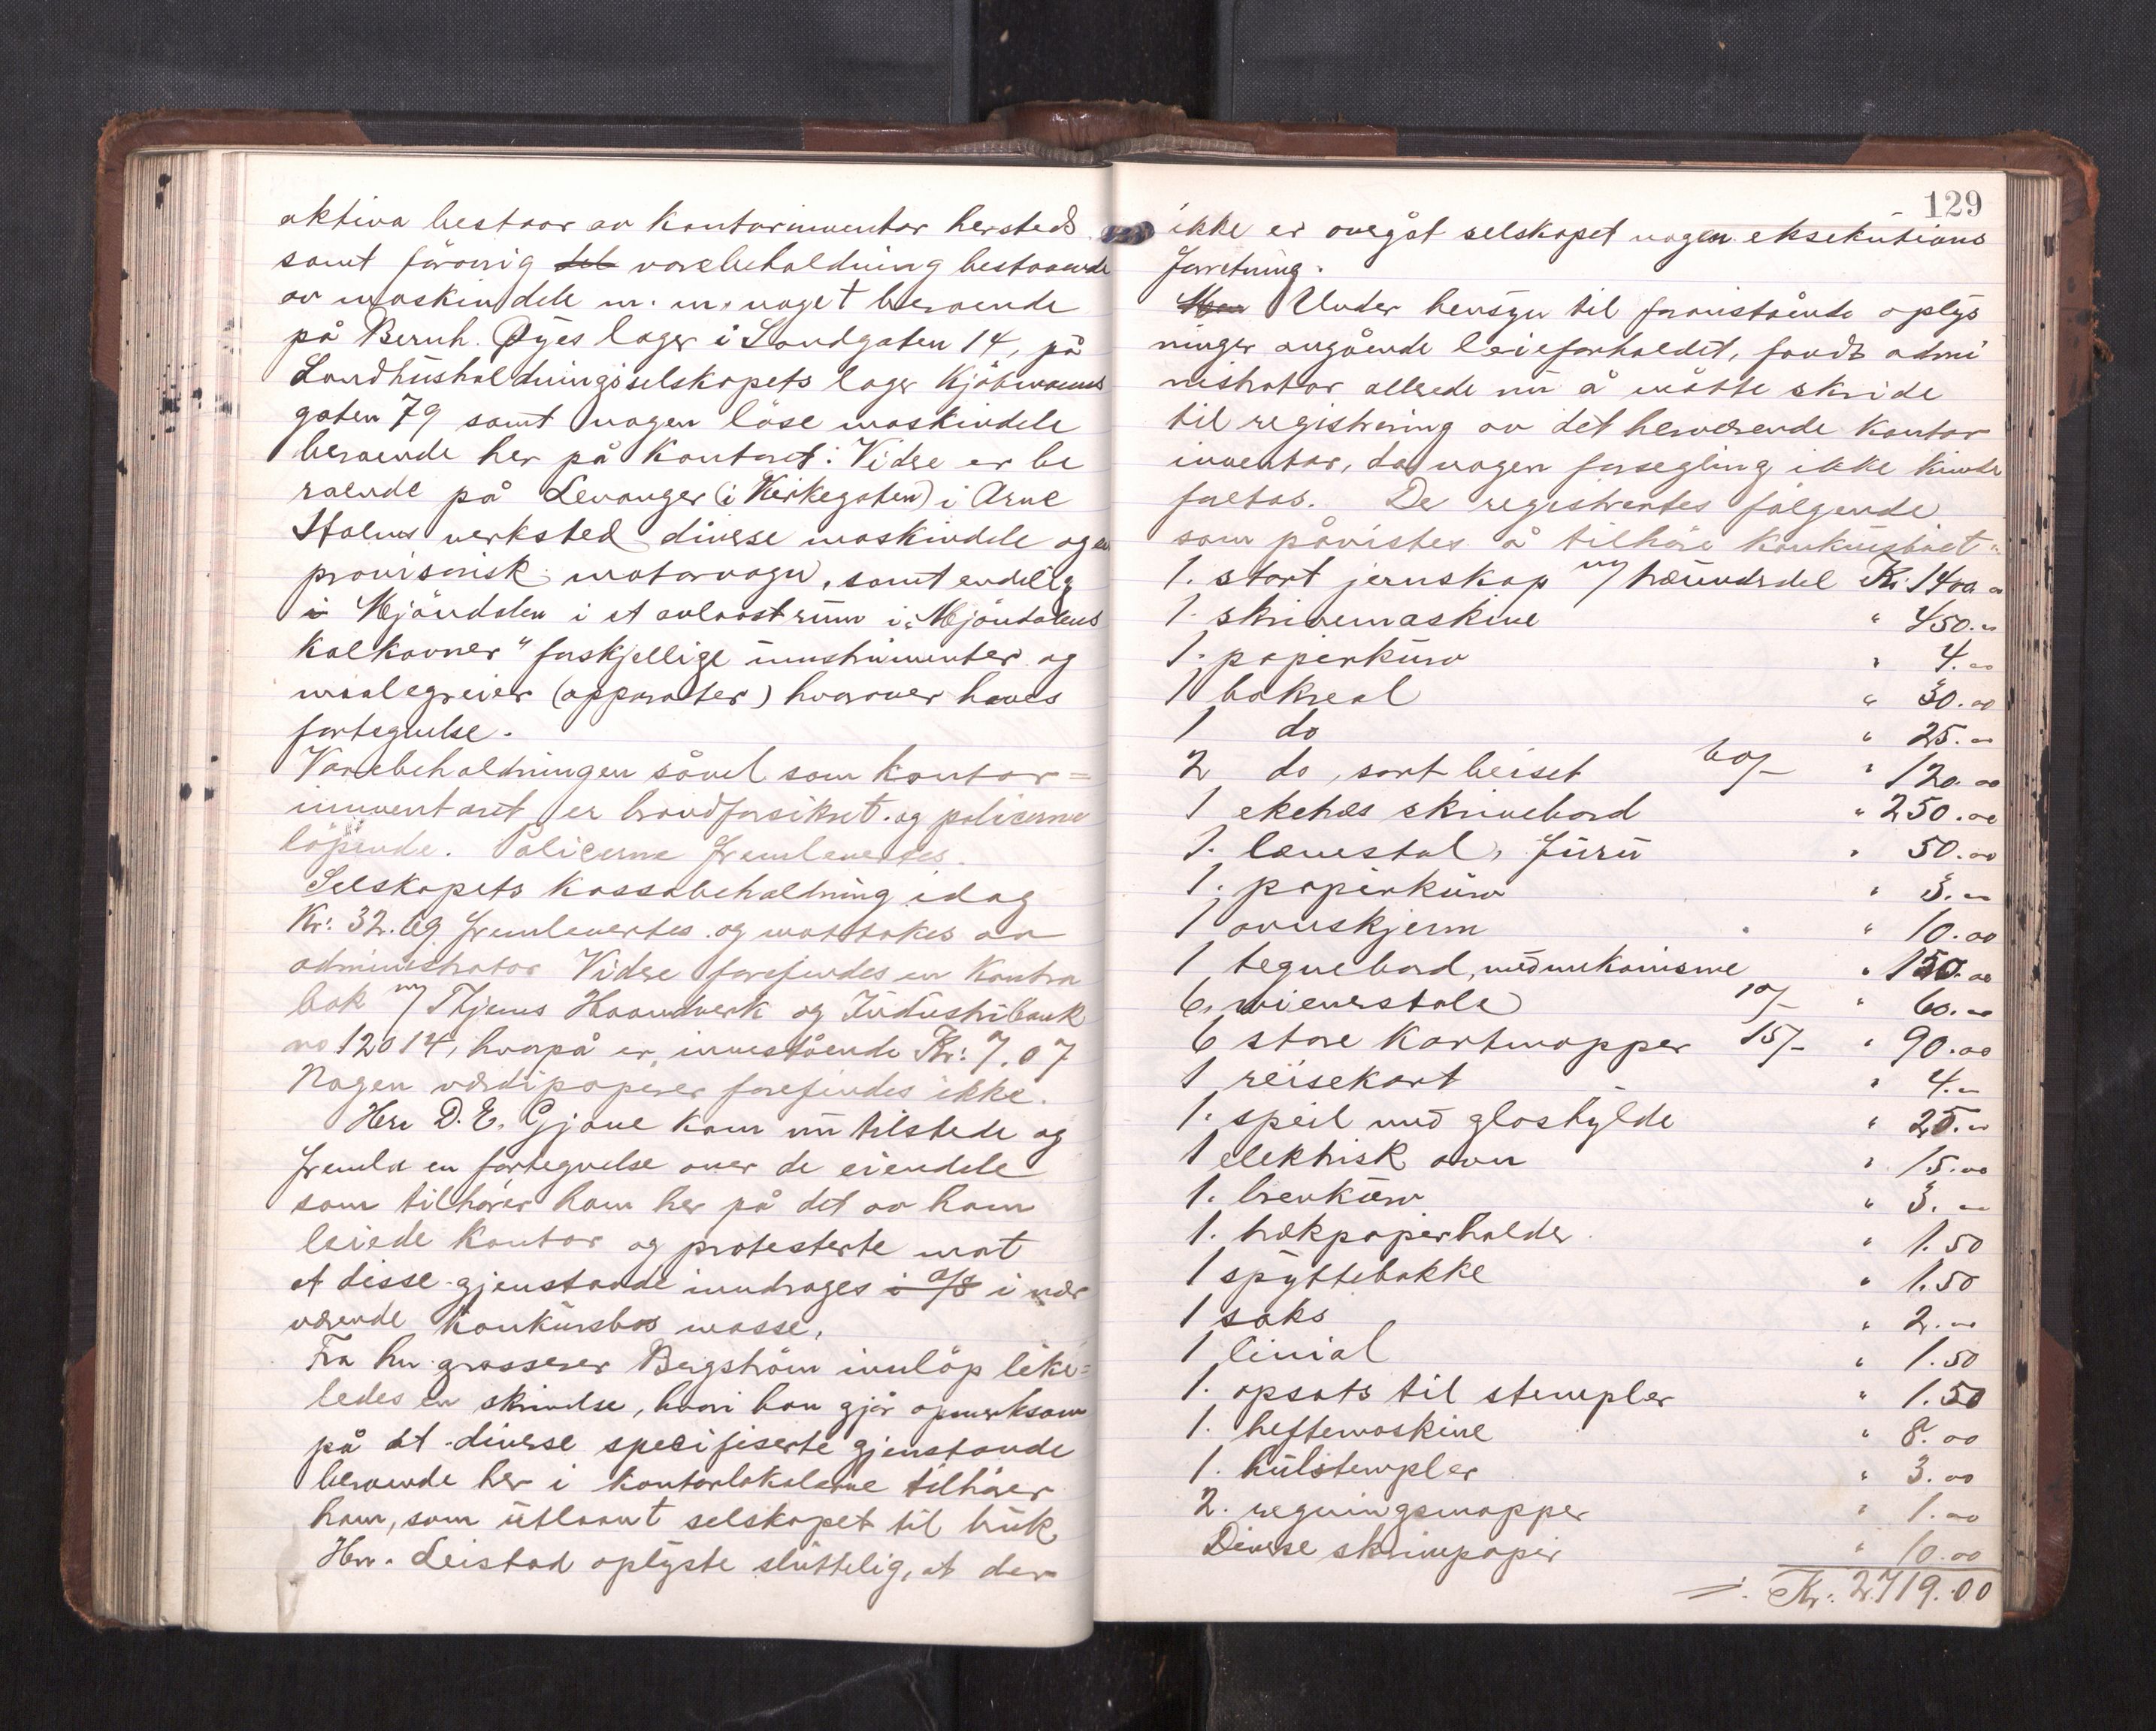 aktiva bestaar av kontorinventar hersteds
samt forövrig det varebeholdning bestaaende
av maskindele m. m. noget beroende
på Bernh. Øyes lager i Sandgaten 14, på
Landhusholdningsselskapets lager Kjöbmanns
gaten 79 samt nogen löse maskindele
beroende her på kontoret: Videre er be
roende på Levanger (i Kirkegaten) i Arne
Holms verksted diverse maskindele og en
provisorisk motorvogn, samt endelig
i Mjöndalen i et avlaast rum i „Mjöndalens
kalkovner" forskjellige instrumenter og
maalegreier (apparater) hvorover haves
fortegnelse.
Varebeholdningen såvel som kontor=
inventaret er brandforsikret og policerne
löpende. Policerne fremlevertes.
Selskapets kassabeholdning idag
Kr: 32.69 fremlevertes og mottokes av
administrator Videre forefindes en kontra
bok m/ Thjems Haandverk og Industribank
no 12014, hvorpå er innestående Kr: 7.07
Nogen værdipapirer forefindes ikke.
Herr D. E. Gjone kom nu tilstede og
fremla en fortegnelse over de eiendele
som tilhörer ham her på det av ham
leiede kontor og protesterte mot
at disse gjenstande inndrages i a/s i nær
værende konkursbos masse.
Fra hr. grosserer Bergström innlöp like=
ledes en skrivelse, hvori han gjör opmerksom
på at diverse spesifiserte gjenstande
beroende her i kontorlokalerne tilhörer
ham, som utlaant selskapet til bruk
Herr. Leistad oplyste sluttelig, at der
129
ikke er overgåt selskapet nogen eksekutions
forretning.
Man Under hensyn til foranstående oplys
ninger angående leieforholdet, fandt admi
nistrator allerede nu å måtte skride
til registrering av det herværende kontor
inventar, da nogen forsegling ikke kunde
foretas. Der registrertes følgende
som påvistes å tilhöre konkursboet:
1. stort jernskap m/ træundrdel Kr. 1400.00
1. skrivemaskine " 450.00
1. papirkurv " 4.00
1 bokreol " 30.00
1 do " 25.00
2 do, sort beiset 60/- " 120.00
1 eketræs skrivebord " 250.00
1. lænestol, furu " 50.00
1. papirkurv " 3.00
1 ovnskjerm " 10.00
1 tegnebord, med mekanisme " 150.00
6. wienerstole 10/- " 60.00
6 store kartmapper 15/- " 90.00
1 reisekart " 4.00
1. speil med glashylde " 25.00
1 elektrisk ovn " 15.00
1. brevkurv " 3.00
1. trækpapirholder " 1.50
1 spyttebakke " 1.50
1 saks " 2.00
1 linial " 1.50
1. opsats til stempler " 1.50
1. heftemaskine " 8.00
1. hulstempler " 3.00
2. regningsmapper " 1.00
Diverse skrivepapir " 10.00
Kr. 2.719.00